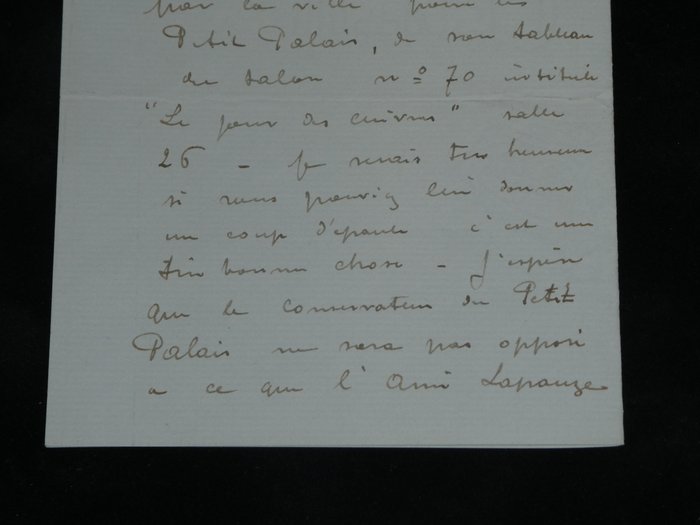 par la ville pour le
Petit Palais, de son tableau
du salon nº 70 intitulé
"Le jour des cuivres" salle
26 - je serais très heureux
si vous pouviez lui donner
un coup d'épaule c'est une
très bonne chose - J'espère
que le conservateur du Petit
Palais ne sera pas opposé
a ce que l'Ami Lapauze